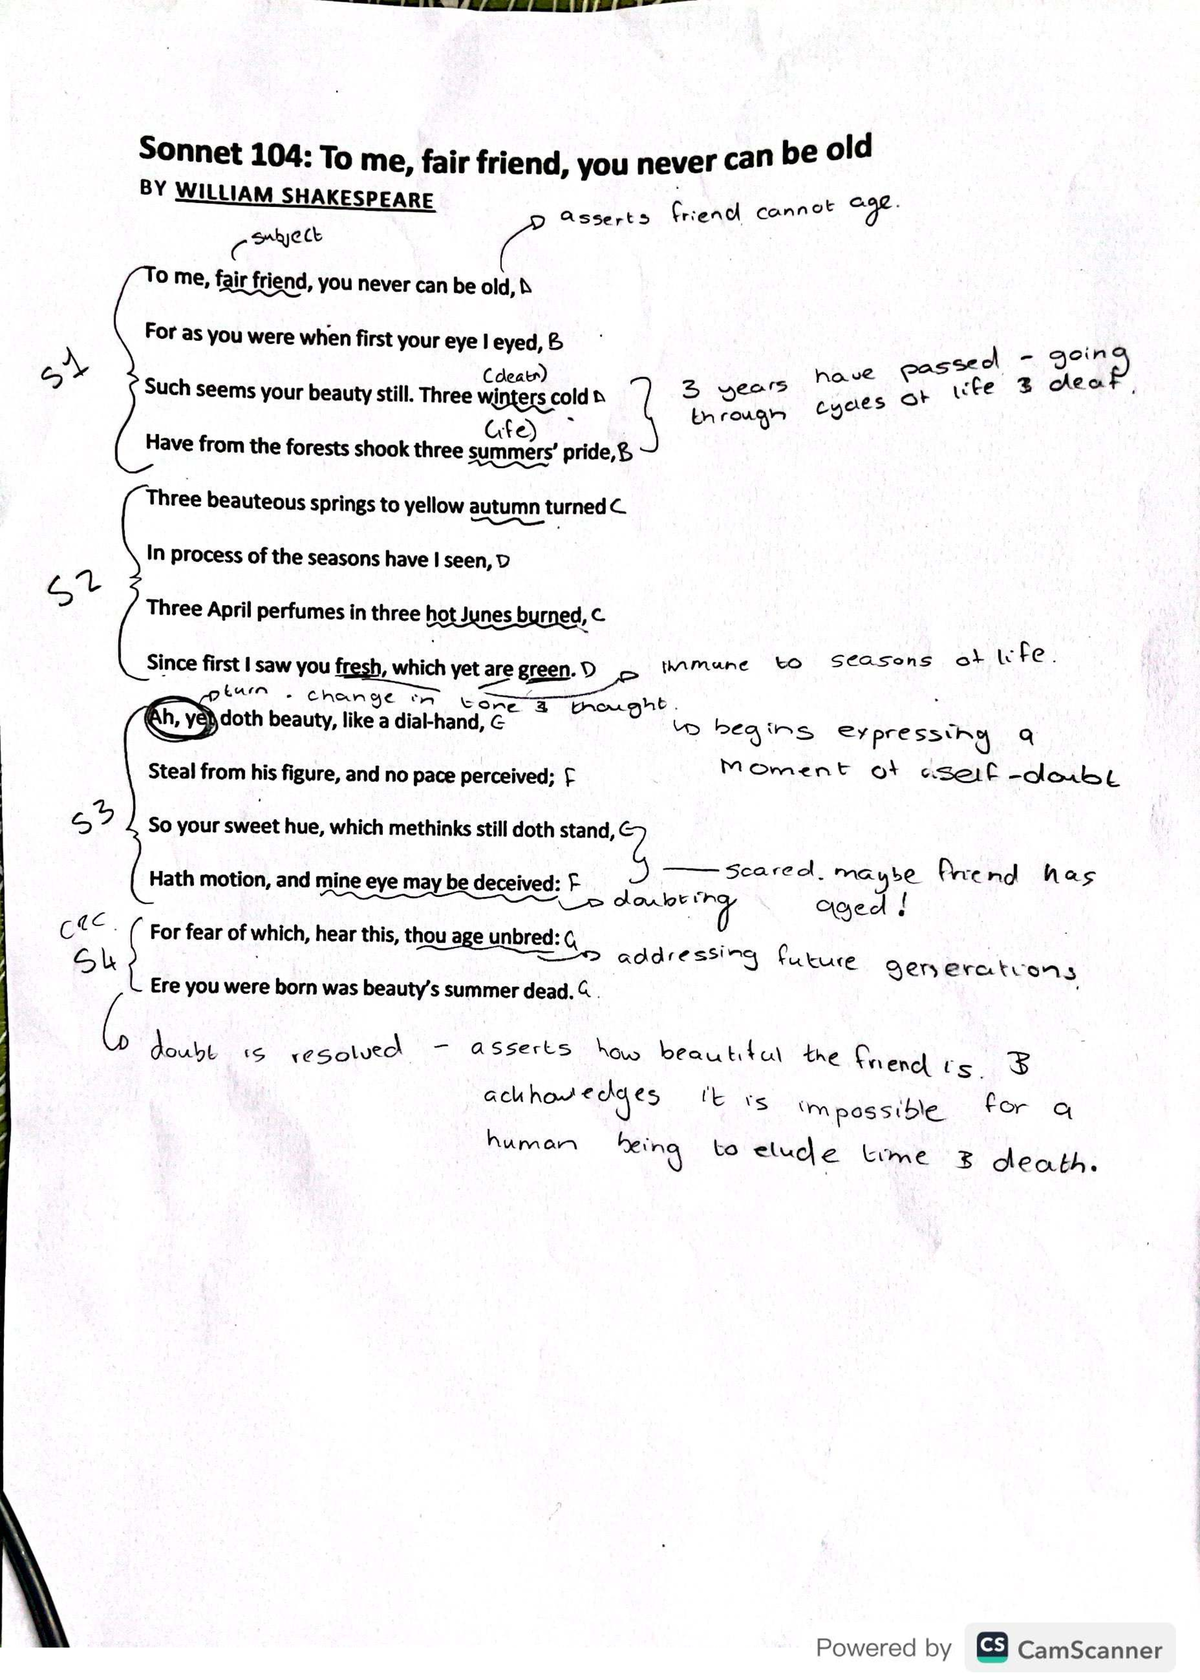 Sonnet 104: To me, fair friend, you never can be old
BY WILLIAM SHAKESPEARE
asserts friend cannot age.
subject
To me, fair friend, you never can be old, A
For as you were when first your eye I eyed, B
(death)
Such seems your beauty still. Three winters cold A
3 years have passed - going
through cycles of life & deaf.
(life)
Have from the forests shook three summers' pride, B
S1
Three beauteous springs to yellow autumn turned C
In process of the seasons have I seen, D
S2
Three April perfumes in three hot Junes burned, C
Since first I saw you fresh, which yet are green. D
immune to seasons of life.
turn . change in tone & thought.
Ah, yet doth beauty, like a dial-hand, E
begins expressing a
moment of self-doubt
Steal from his figure, and no pace perceived; F
S3
So your sweet hue, which methinks still doth stand, E
Hath motion, and mine eye may be deceived: F
scared. maybe friend has
aged!
doubting
For fear of which, hear this, thou age unbred: G
addressing future generations.
S4
Ere you were born was beauty's summer dead. G
doubt is resolved - asserts how beautiful the friend is. &
acknowledges it is impossible for a
human being to elude time & death.
Powered by CS CamScanner